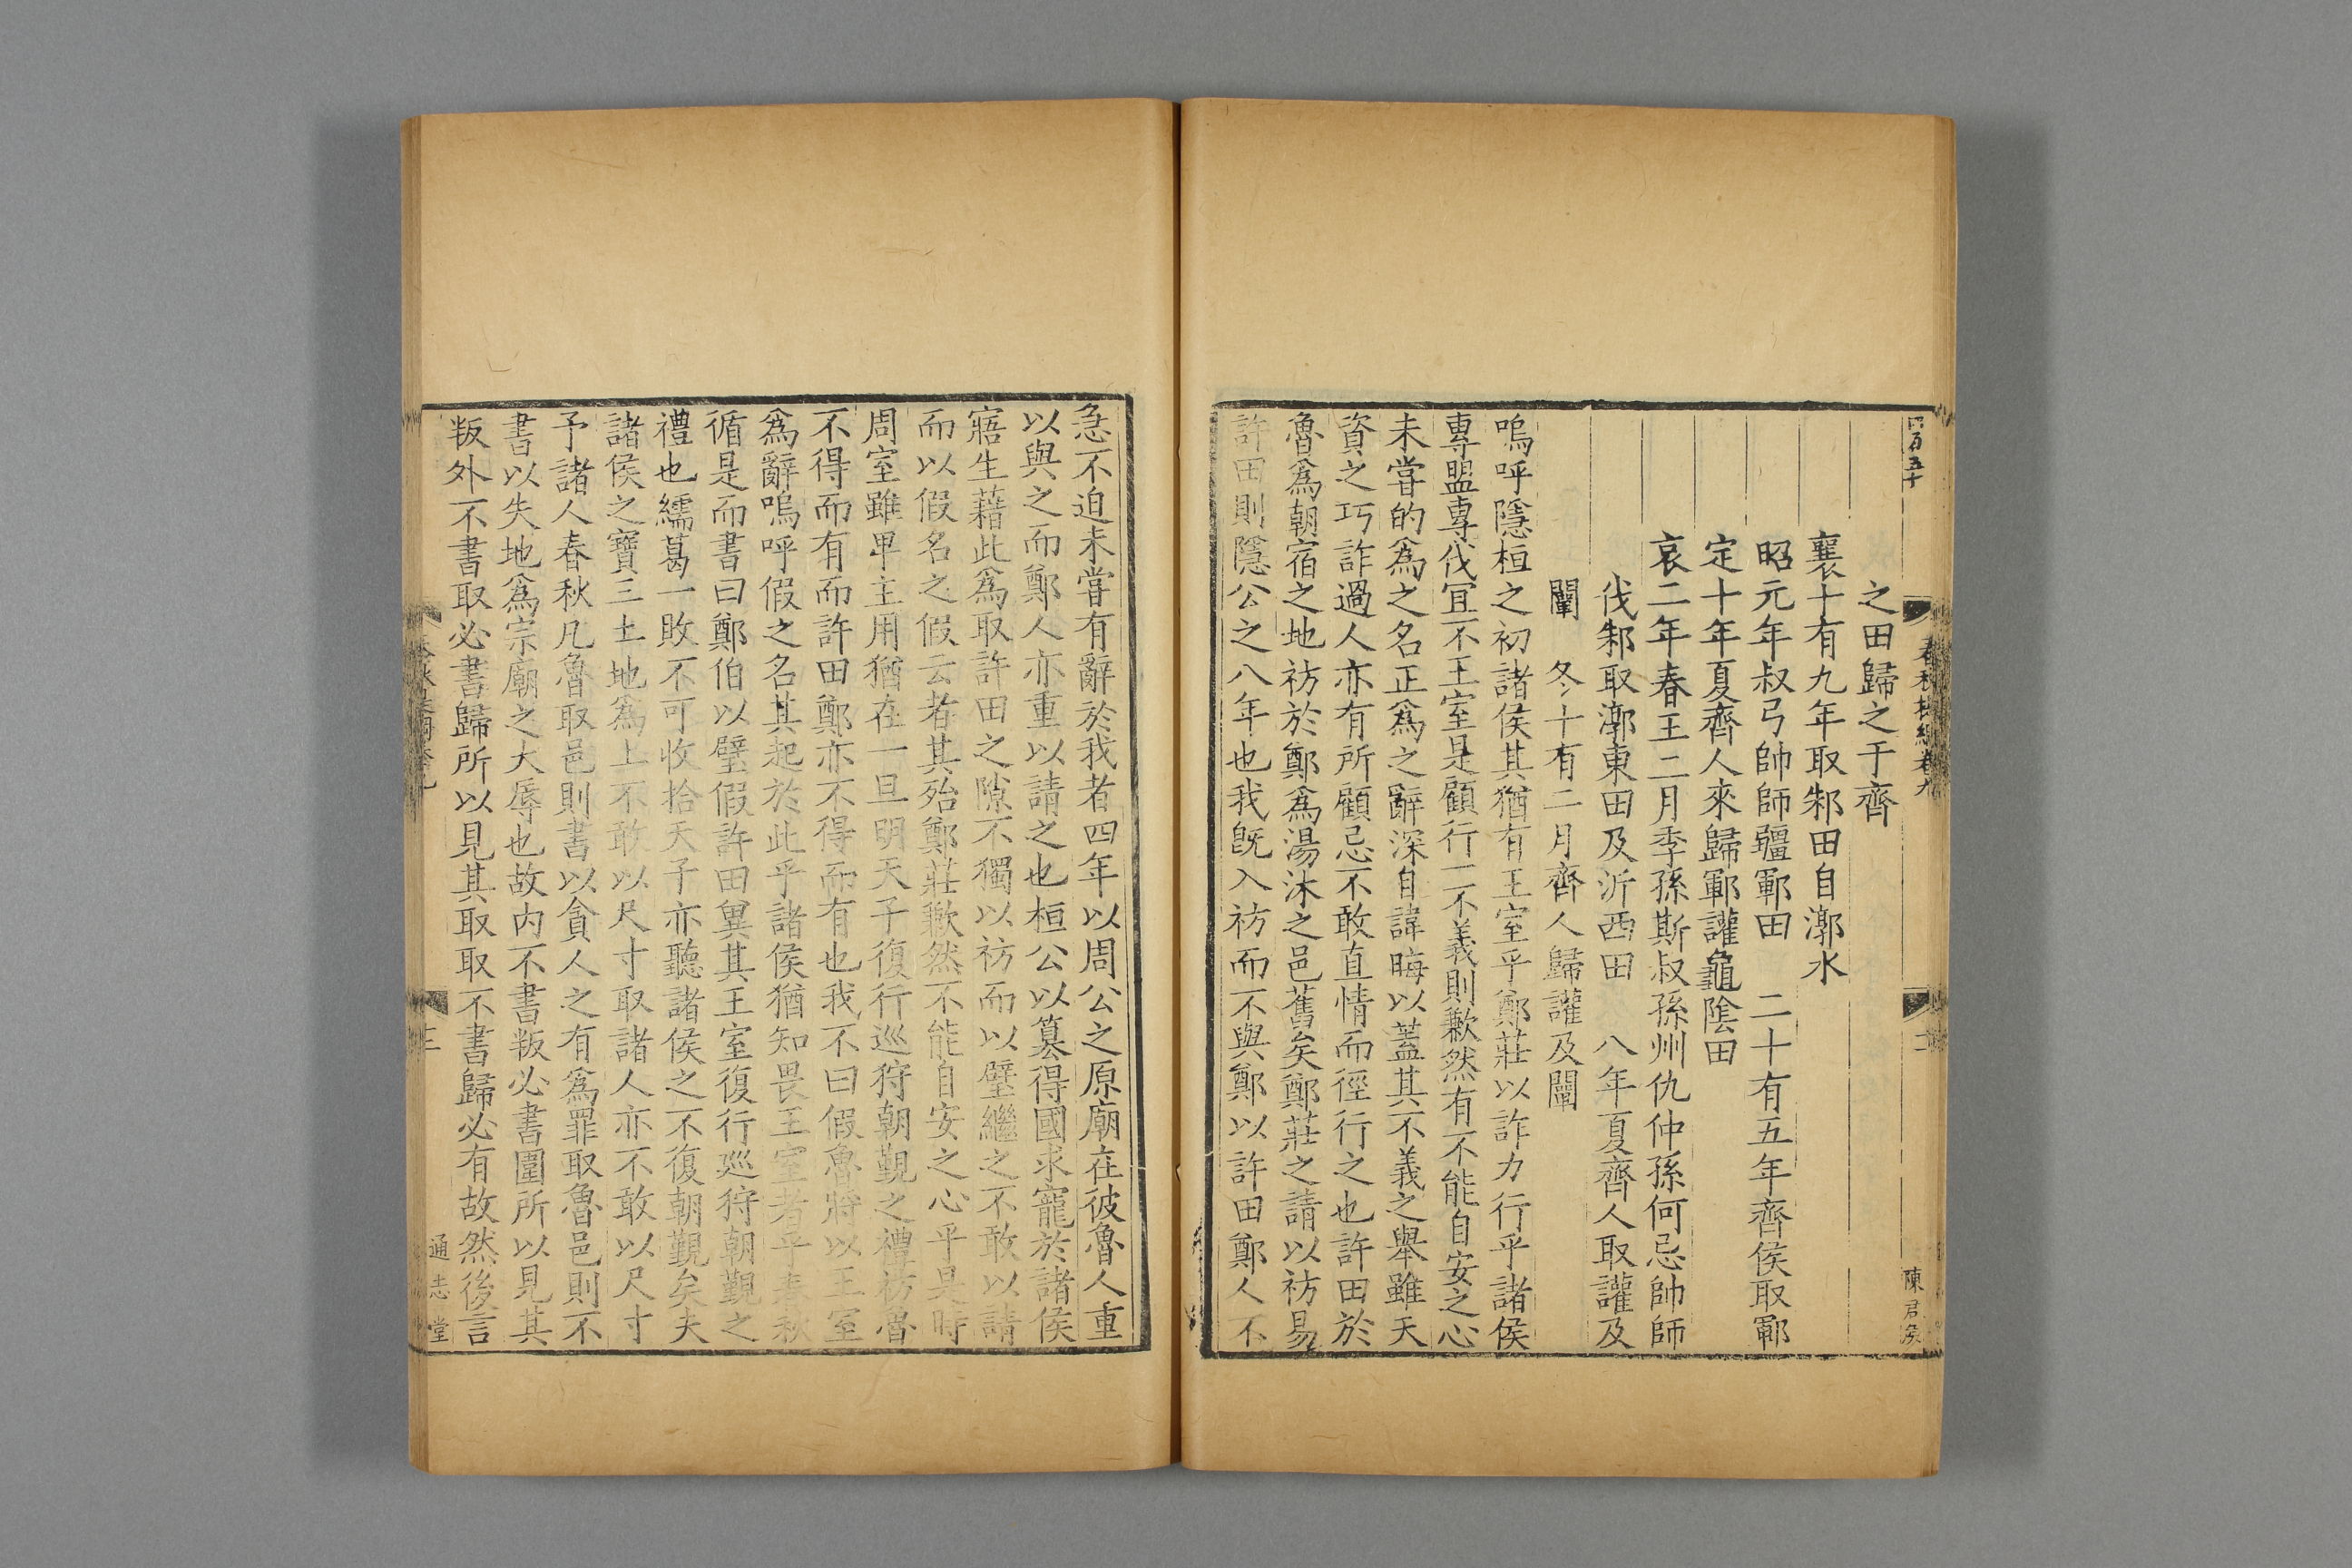 四百五十
春秋提綱卷九
二
陳君侯
之田歸之于齊
襄十有九年取邾田自漷水
昭元年叔弓帥師疆鄆田 二十有五年齊侯取鄆
定十年夏齊人來歸鄆讙龜陰田
哀二年春王二月季孫斯叔孫州仇仲孫何忌帥師
伐邾取漷東田及沂西田 八年夏齊人取讙及
闡 冬十有二月齊人歸讙及闡
嗚呼隱桓之初諸侯其猶有王室乎鄭莊以詐力行乎諸侯
專盟專伐冝不王室是顧行一不義則歉然有不能自安之心
未甞的爲之名正爲之辭深自諱晦以葢其不義之舉雖天
資之巧詐過人亦有所顧忌不敢直情而徑行之也許田於
魯爲朝宿之地祊於鄭爲湯沐之邑舊矣鄭莊之請以祊易
許田則隱公之八年也我旣入祊而不與鄭以許田鄭人不
急不迫未嘗有辭於我者四年以周公之原廟在彼魯人重
以與之而鄭人亦重以請之也桓公以簒得國求寵於諸侯
寤生藉此爲取許田之隙不獨以祊而以璧繼之不敢以請
而以假名之假云者其殆鄭莊歉然不能自安之心乎是時
周室雖卑主用猶在一旦明天子復行巡狩朝覲之禮祊魯
不得而有而許田鄭亦不得而有也我不曰假魯將以王室
爲辭嗚呼假之名其起於此乎諸侯猶知畏王室者乎春秋
循是而書曰鄭伯以璧假許田異其王室復行巡狩朝覲之
禮也繻葛一敗不可收拾天子亦聽諸侯之不復朝覲矣夫
諸侯之寶三土地爲上不敢以尺寸取諸人亦不敢以尺寸
予諸人春秋凡魯取邑則書以貪人之有爲罪取魯邑則不
書以失地爲宗廟之大辱也故内不書叛必書圍所以見其
叛外不書取必書歸所以見其取取不書歸必有故然後言
三
通志堂